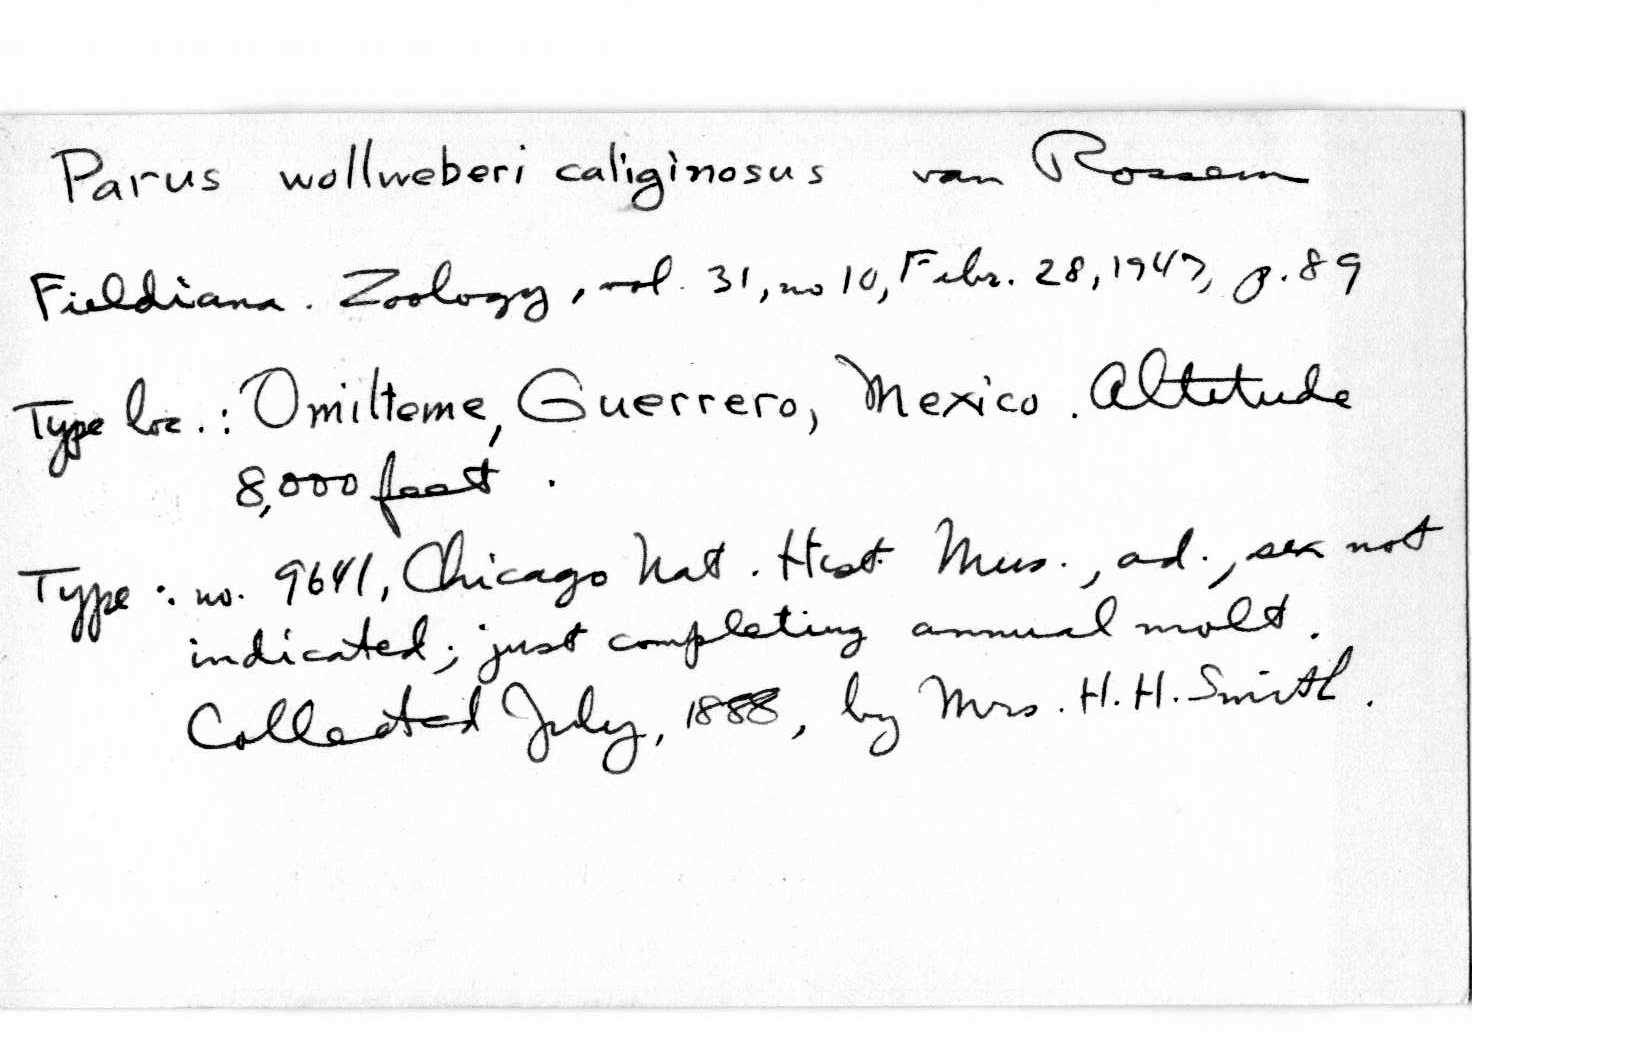 Parus wollweberi caliginosus van Rossem
Fieldiana. Zoology, vol. 31, no 10, Febr. 28, 1947, p. 89
Type loc.: Omilteme, Guerrero, Mexico. Altitude
8,000 feet.
Type: no. 9641, Chicago Nat. Hist. Mus., ad., sex not
indicated; just completing annual molt.
Collected July, 1888, by Mrs. H. H. Smith.